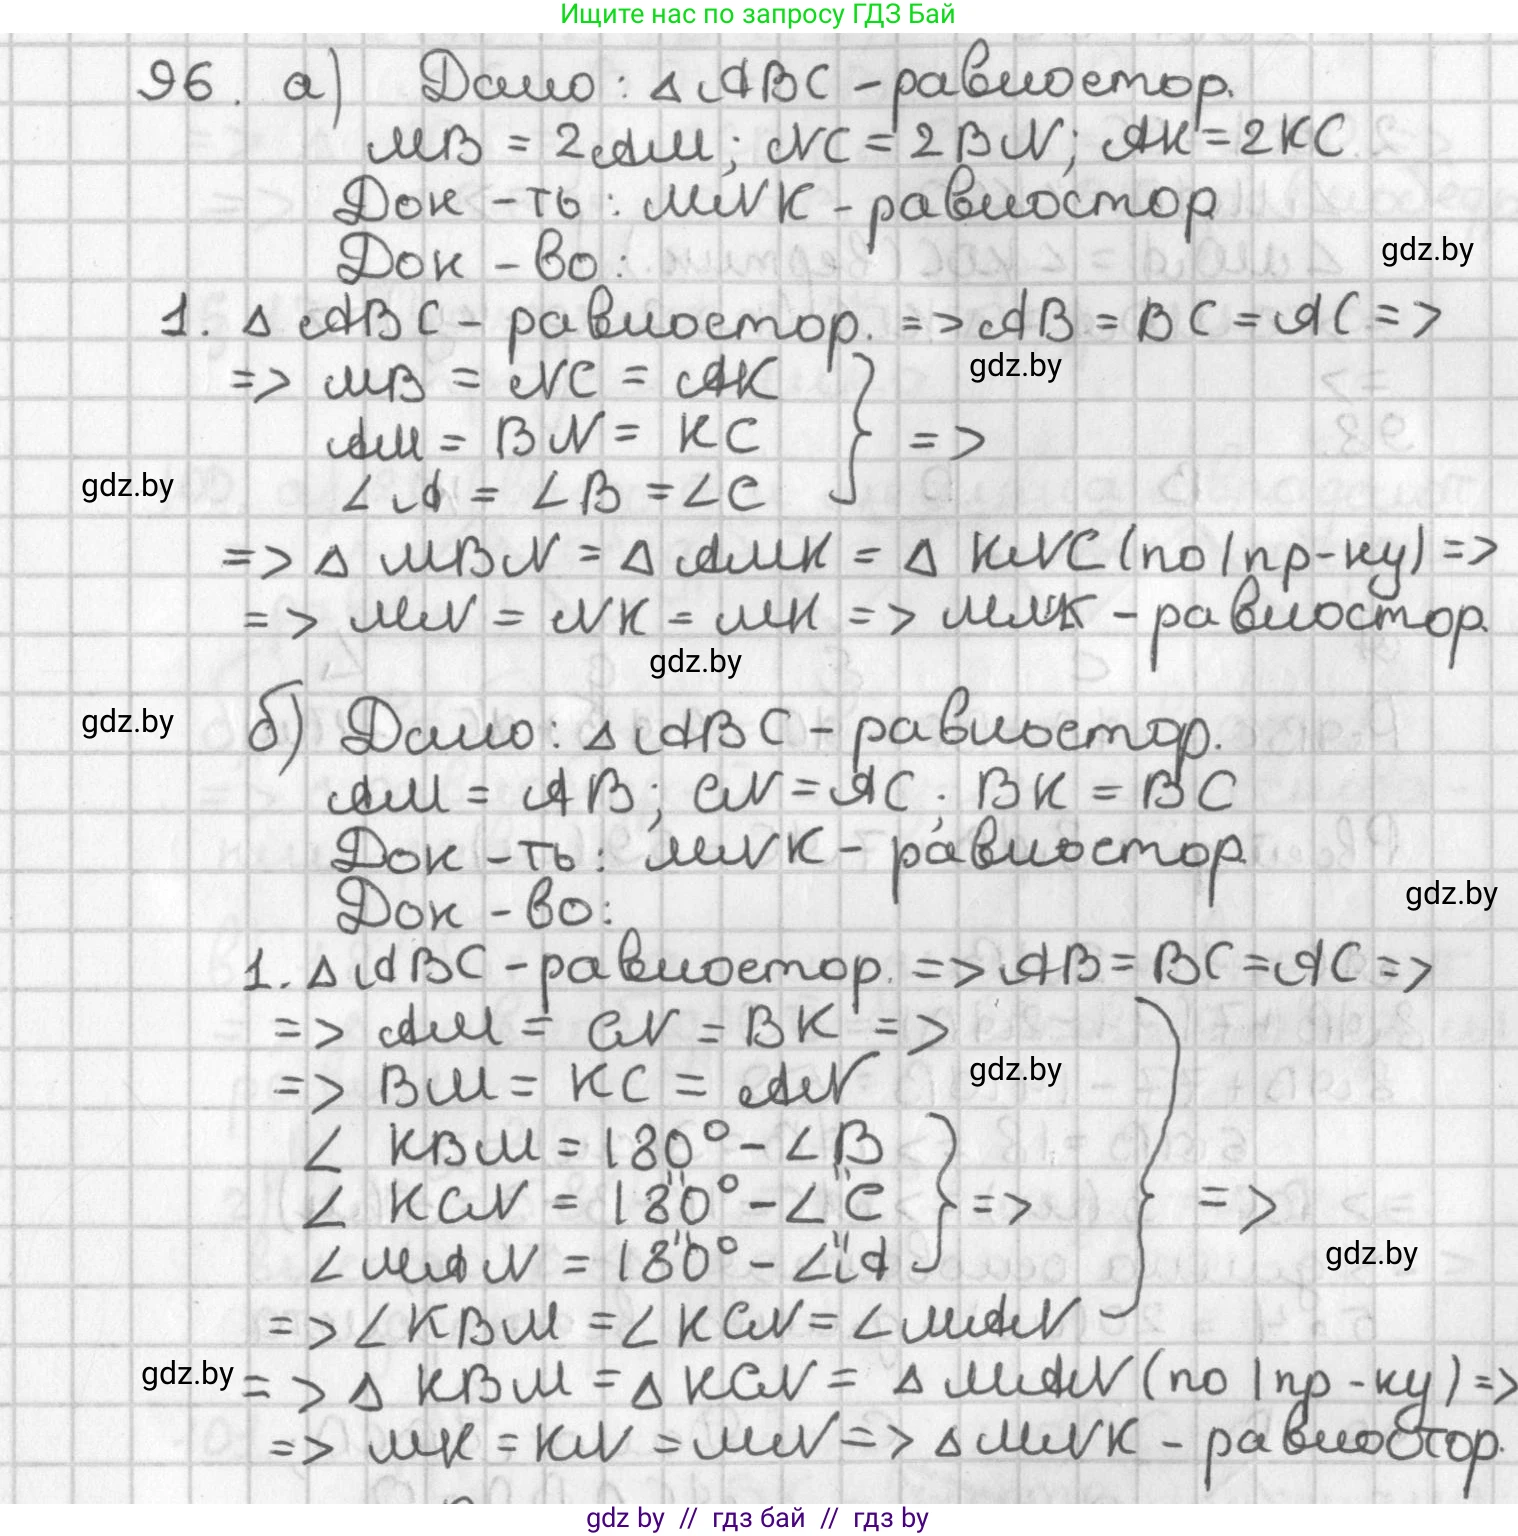 Ищите нас по запросу ГДЗ Бай
96. а) Дано: △ABC - равностор.
MB = 2AM; NC = 2BN; AK = 2KC
Док-ть: MNK - равностор
Док-во:
gdz.by
1. △ABC - равностор. => AB = BC = AC =>
gdz.by
=> MB = NC = AK
AM = BN = KC } =>
gdz.by
∠A = ∠B = ∠C
=> △MBN = △AMK = △KNC (по I пр-ку) =>
=> MN = NK = MK => MNK - равностор.
gdz.by
gdz.by
б) Дано: △ABC - равностор.
AM = AB; CN = AC; BK = BC
Док-ть: MNK - равностор.
gdz.by
Док-во:
1. △ABC - равностор. => AB = BC = AC =>
=> AM = CN = BK =>
gdz.by
=> BM = KC = AN
∠KBM = 180° - ∠B
∠KCN = 180° - ∠C } => } =>
∠MAN = 180° - ∠A
gdz.by
=> ∠KBM = ∠KCN = ∠MAN
gdz.by
=> △KBM = △KCN = △MAN (по I пр-ку) =>
=> MK = KN = MN => △MNK - равностор.
gdz.by // гдз бай // гдз by